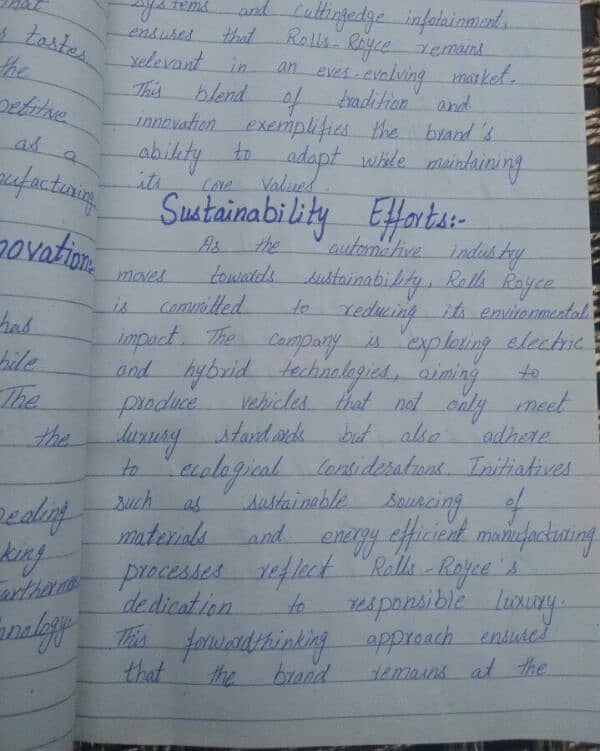 that
tastes
the
petitive
as a
nufacturing
novation:
has
hile
The
the
ealing
king
arthermore
hnology.
systems and Cuttingedge infotainment,
ensures that Rolls-Royce remains
relevant in an ever-evolving market.
This blend of tradition and
innovation exemplifies the brand's
ability to adapt while maintaining
its core values.
Sustainability Efforts:-
As the automotive industry
moves towards sustainability, Rolls Royce
is committed to reducing its environmental
impact. The company is exploring electric
and hybrid technologies, aiming to
produce vehicles that not only meet
luxury standards but also adhere
to ecological considerations. Initiatives
such as sustainable sourcing of
materials and energy efficient manufacturing
processes reflect Rolls-Royce's
dedication to responsible luxury.
This forwardthinking approach ensures
that the brand remains at the